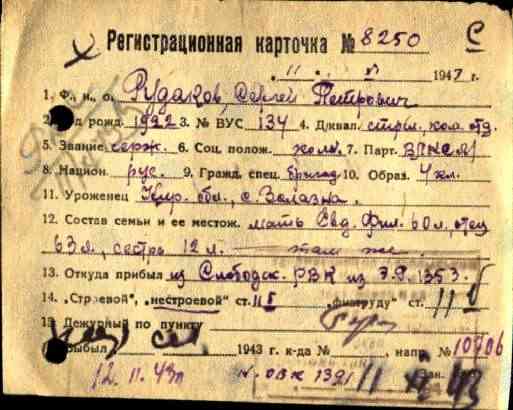 Регистрационная карточка № 8250 С
11 194 г.
1. Ф., и., о. Рудаков, Сергей Петрович
2. Год рожд. 1922 3. № ВУС 134 4. Д/квал. стрел. ком. отд.
5. Звание серж. 6. Соц. полож. колх. 7. Парт.
8. Национ. рус. 9. Гражд. спец. бригад 10. Образ. 4 кл.
11. Уроженец Кир. обл., с.
12. Состав семьи и ее местож. мать Евд. Фил. 60 л, отец
63 л, сестра 12 л. там же.
13. Откуда прибыл из Слободск. РВК из Э.Г. 1353.
14. „Строевой", „нестроевой" ст. II „физтруду" ст.
15. Дежурный по пункту
Убыл 1943 г. к-да № , напр. № 10706
12.11.43г ОВК 1321 11 43